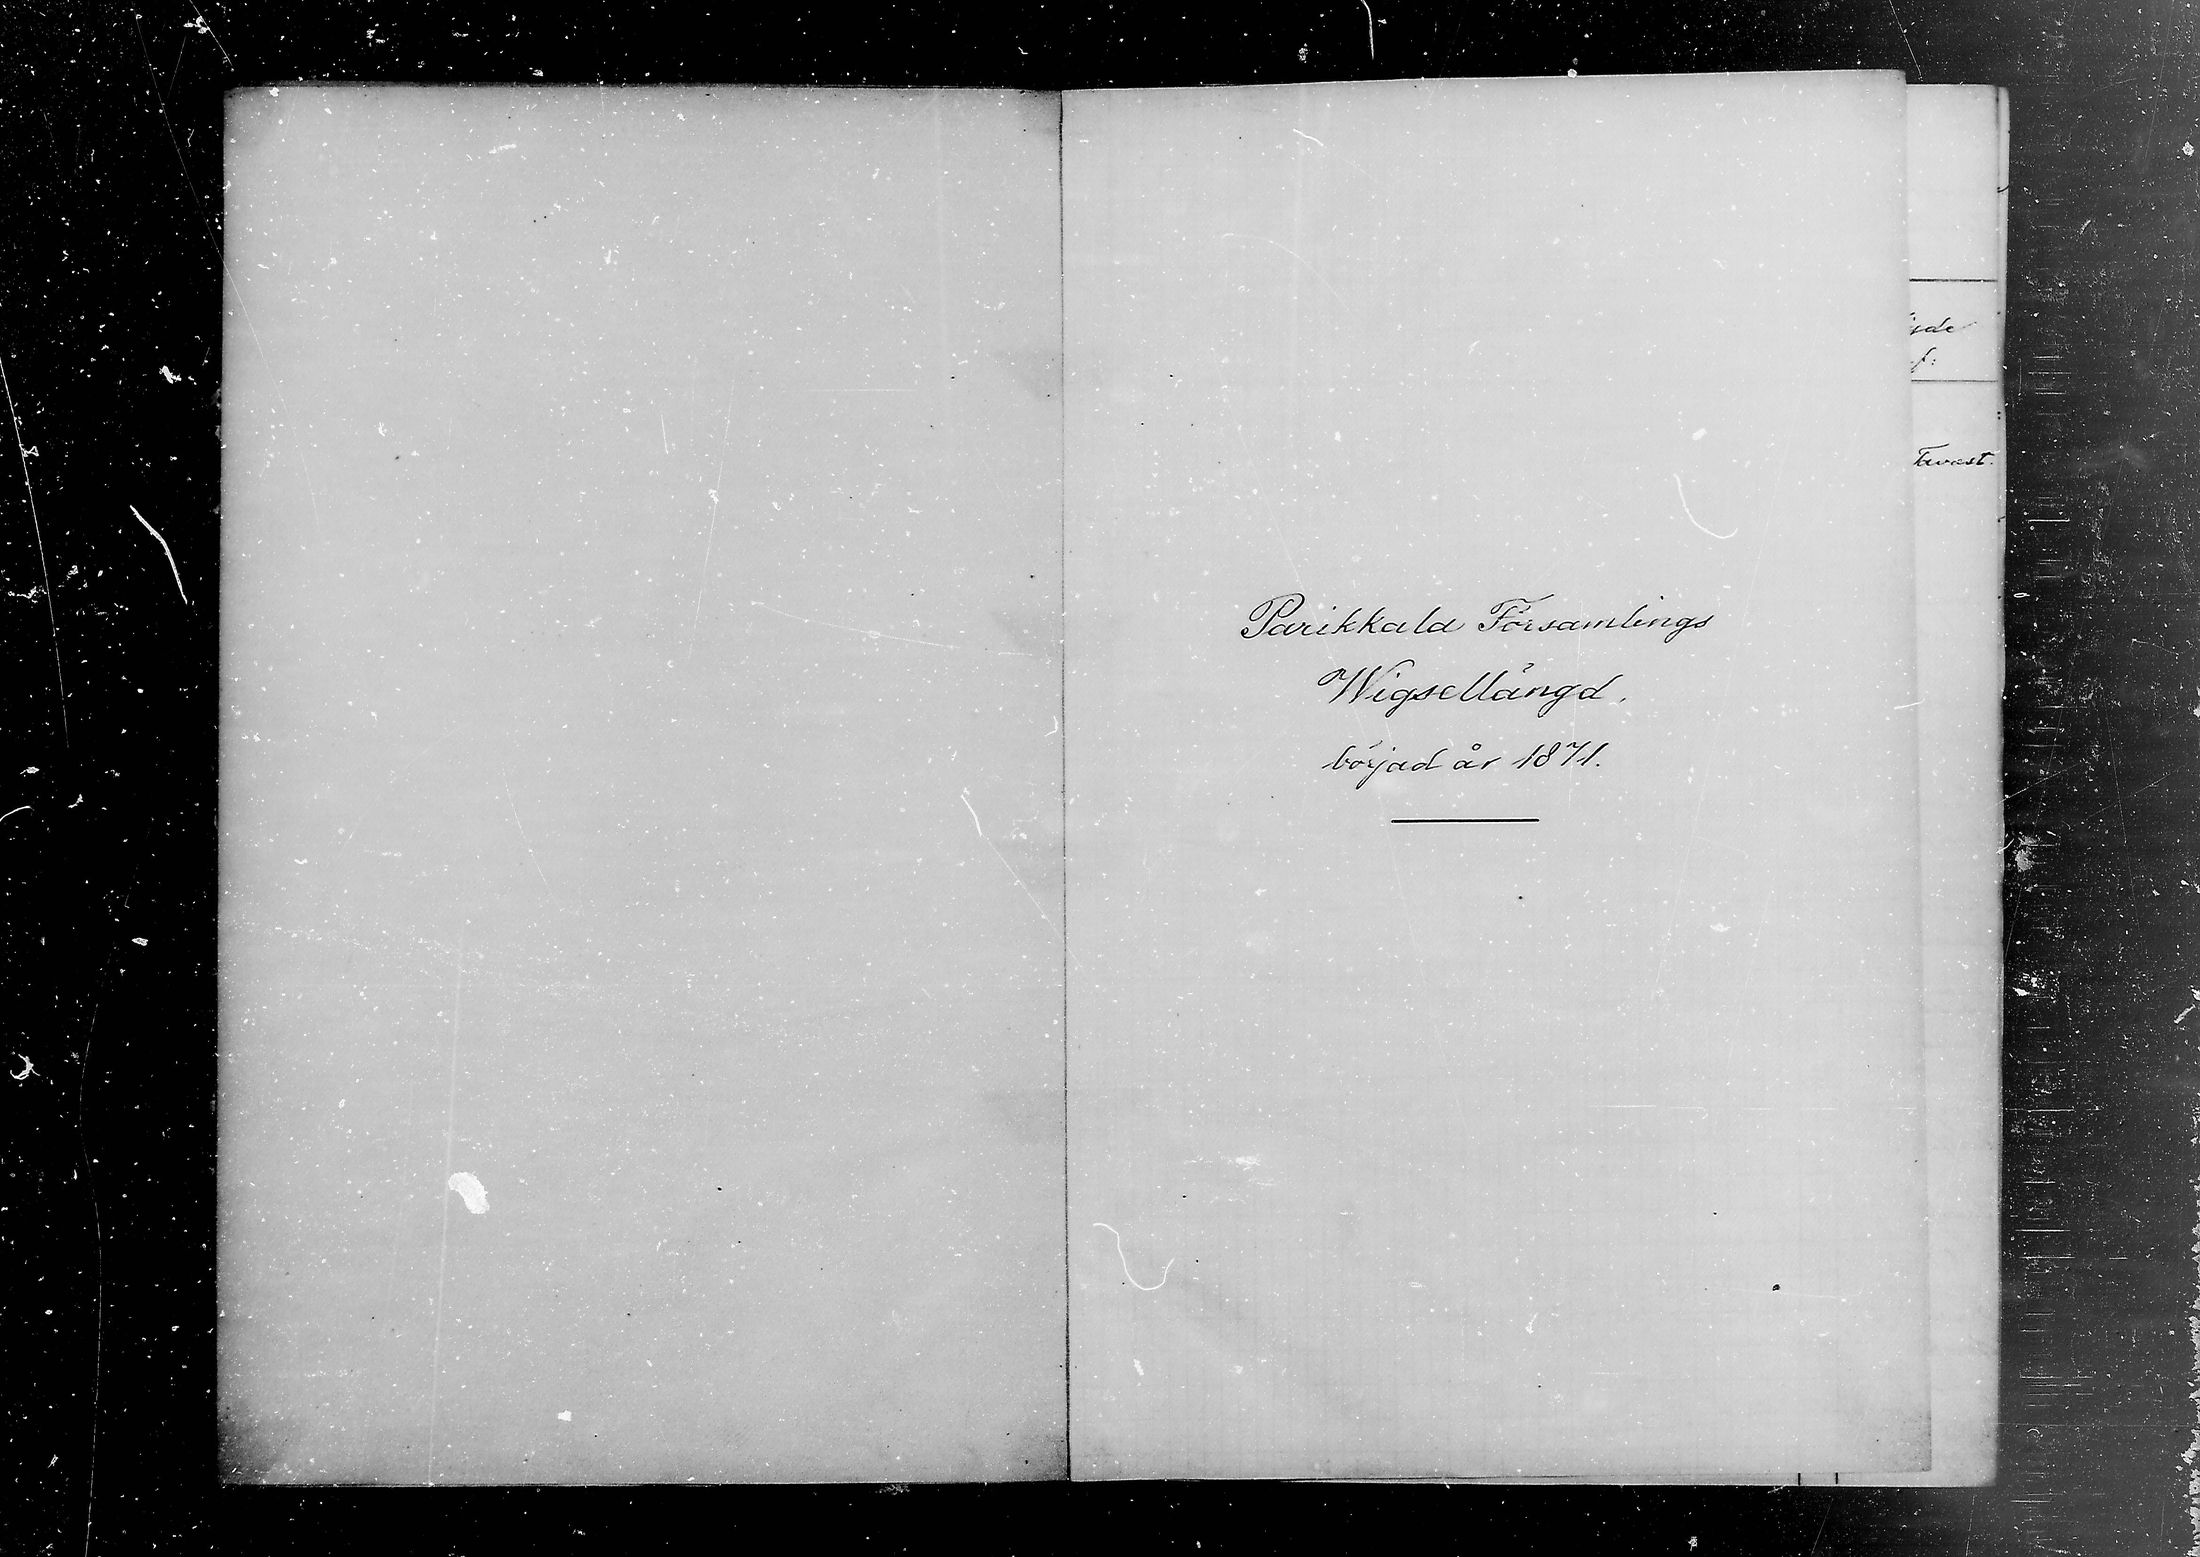 Parikkala Församlings
Wigsellängd.
började år 1871.
Tavast.